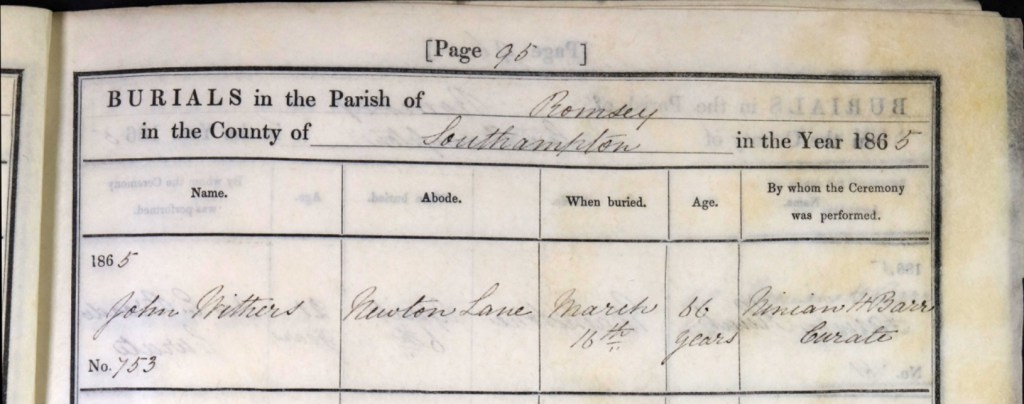 [Page 95]
BURIALS in the Parish of Romsey
in the County of Southampton in the Year 1865
Name. Abode. When buried. Age. By whom the Ceremony was performed.
1865
John Withers Newton Lane March 16th 86 years Ninian H Barr Curate
No. 753